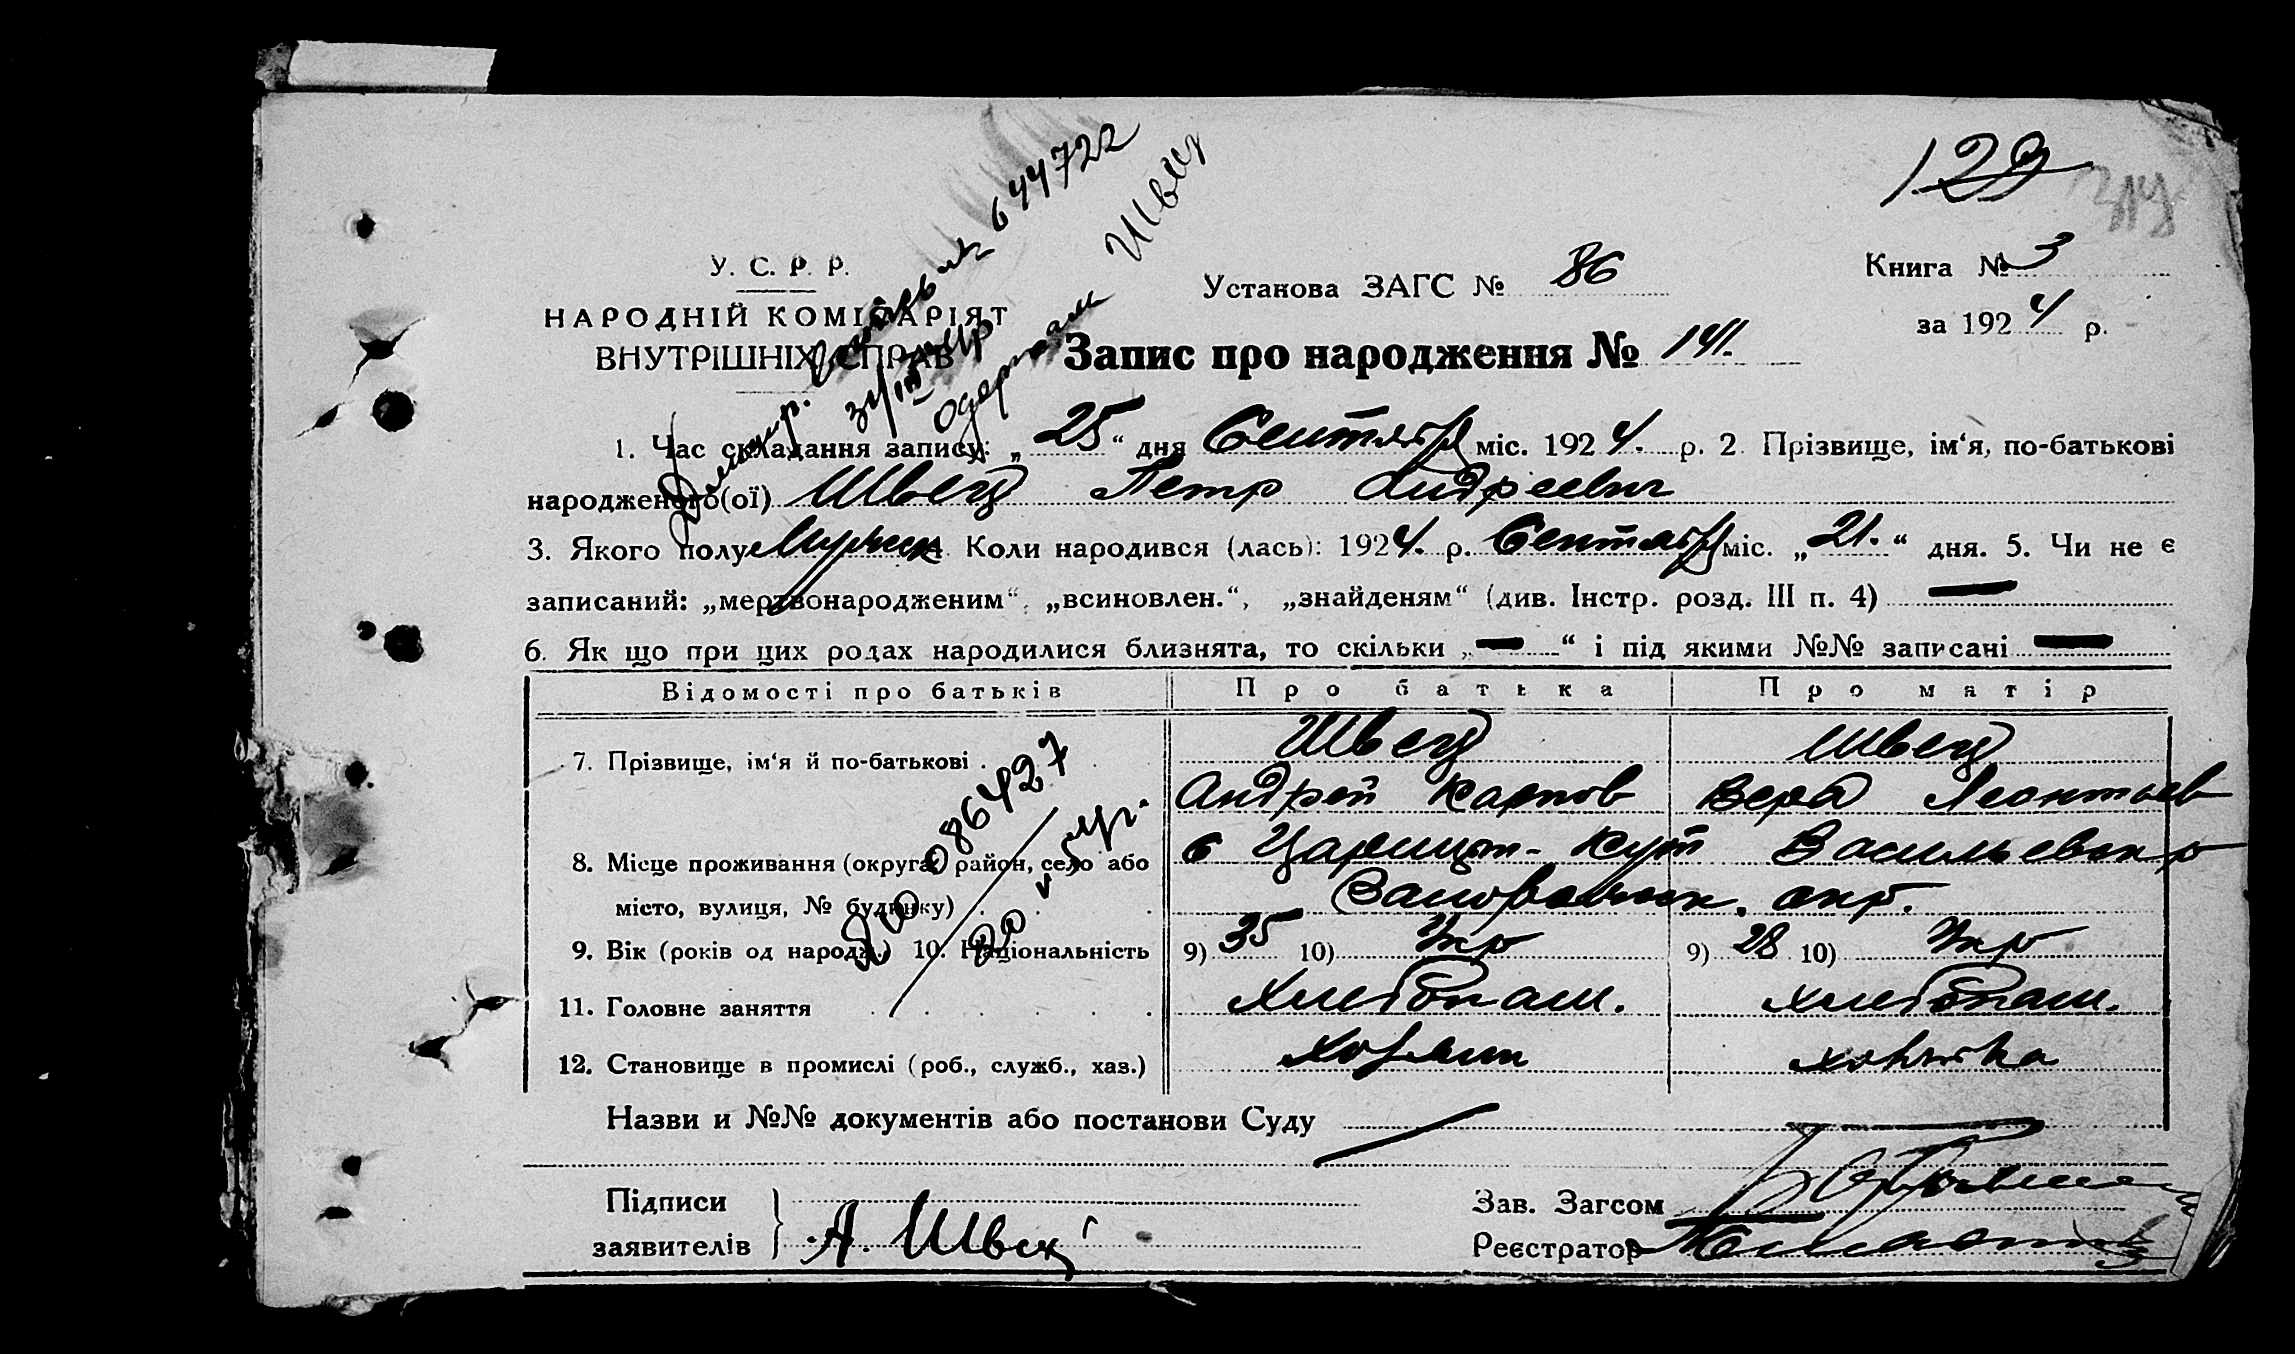 129
У. С. Р. Р.
НАРОДНІЙ КОМІСАРІЯТ
ВНУТРІШНІХ СПРАВ
644722
Швец
Одержали
Установа ЗАГС № 86
Книга № 3
за 1924 р.
Запис про народження № 141.
1. Час складання запису: „25“ дня Сентябр міс. 1924. р. 2. Прізвище, ім‘я, по-батькові
народженого(ої) Швец Петр Андреевич
3. Якого полу Мужск Коли народився (лась): 1924. р. Сентябр міс. „21.“ дня. 5. Чи не є
записаний: „мертвонародженим“, „всиновлен.“, „знайденям“ (див. Інстр. розд. III п. 4) —
6. Як що при цих родах народилися близнята, то скільки „—“ і під якими №№ записані —
Відомості про батьків Про батька Про матір
7. Прізвище, ім‘я й по-батькові . Швец Швец
Андрей Карпов Вера Леонтьев
086427
8. Місце проживання (округа, район, село або с Царицын-Кут Васильевск р
місто, вулиця, № будинку) Запорожск. окр.
9. Вік (років од народж.) 10. Національність 9) 35 10) Укр 9) 28 10) Укр
11. Головне заняття Хлебопаш. хлебопаш.
12. Становище в промислі (роб., служб., хаз.) Хозяин хозяйка
Назви и №№ документів або постанови Суду
Підписи
заявителів А. Швец
Зав. Загсом
Реєстратор